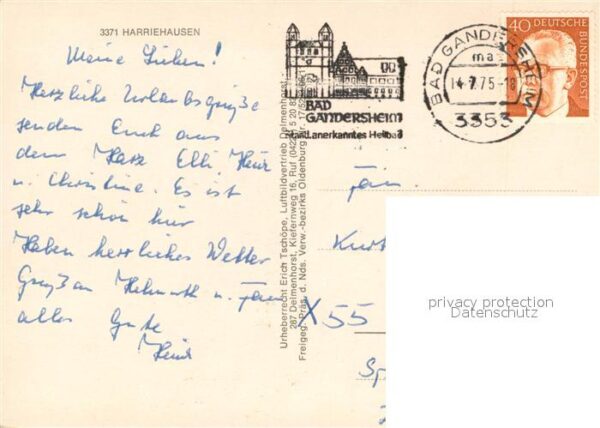 3371 HARRIEHAUSEN
Meine Lieben!
Herzliche Urlaubsgrüße
senden Euch aus
dem Harz Elli, Heinz
u. Christine. Es ist
sehr schön hier
Haben herrliches Wetter
Gruß an Helmuth u.
alles Gute
Heinz
Urheberrecht Erich Tschöpe, Luftbildvertrieb Delmenhorst
287 Delmenhorst, Kiefernweg 16, Ruf (04221) 5 20 82
Freigeg. Präs. d. Nds. Verw.-bezirks Oldenburg
BAD
GANDERSHEIM
staatl. anerkanntes Heilbad
BAD GANDERSHEIM
ma
14.7.75-18
3353
40 DEUTSCHE
BUNDESPOST
Fam.
Kurt
X 55
Sp
privacy protection
Datenschutz